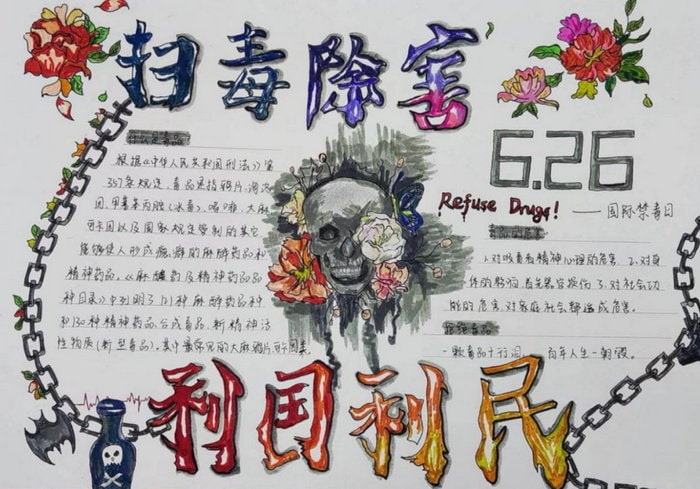 扫毒除害
什么是毒品
根据《中华人民共和国刑法》第
357条规定，毒品是指鸦片、海洛
因、甲基苯丙胺（冰毒）、吗啡、大麻
可卡因以及国家规定管制的其它
能够使人形成瘾癖的麻醉药品和
精神药品。《麻醉药及精神药品品
种目录》中列明了121种麻醉药品种
和130种精神药品、合成毒品、新精神活
性物质（新型毒品）。其中最常见的大麻鸦片可卡因类
6.26
Refuse Drugs! ——国际禁毒日
毒品的危害
1.对吸毒者精神心理的危害. 2.对身
体的 首先器官损伤 3.对社会功
能的危害，对家庭社会都造成危害。
拒绝毒品
一颗毒品十行泪 百年人生一朝毁。
利国利民